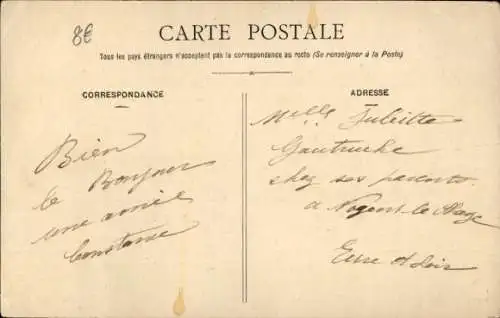 8€
CARTE POSTALE
Tous les pays étrangers n'acceptent pas la correspondance au recto (Se renseigner à la Poste)
CORRESPONDANCE
ADRESSE
Bien
le Bonjour
une amie
Constance
Melle Juliette
Gautruche
chez ses parents
a Nogent-le-Phaye
Eure et Loir